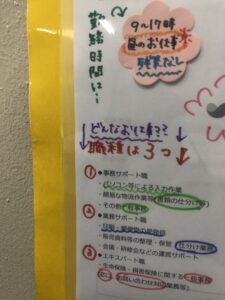 勤務時間は…
9~17時
昼のお仕事
残業なし
どんなお仕事??
職種は3つ
①
◆事務サポート職
・パソコン等による入力作業
・簡易な物流作業等(書類の仕分け等)
・その他一般事務
②
◆業務サポート職
・販売資料等の整理・保管
仕分け業務
・会議・研修会などの運営サポート
③
◆エキスパート職
・生命保険・損害保険に関する一般事務
又は
お問い合わせ対応業務等)